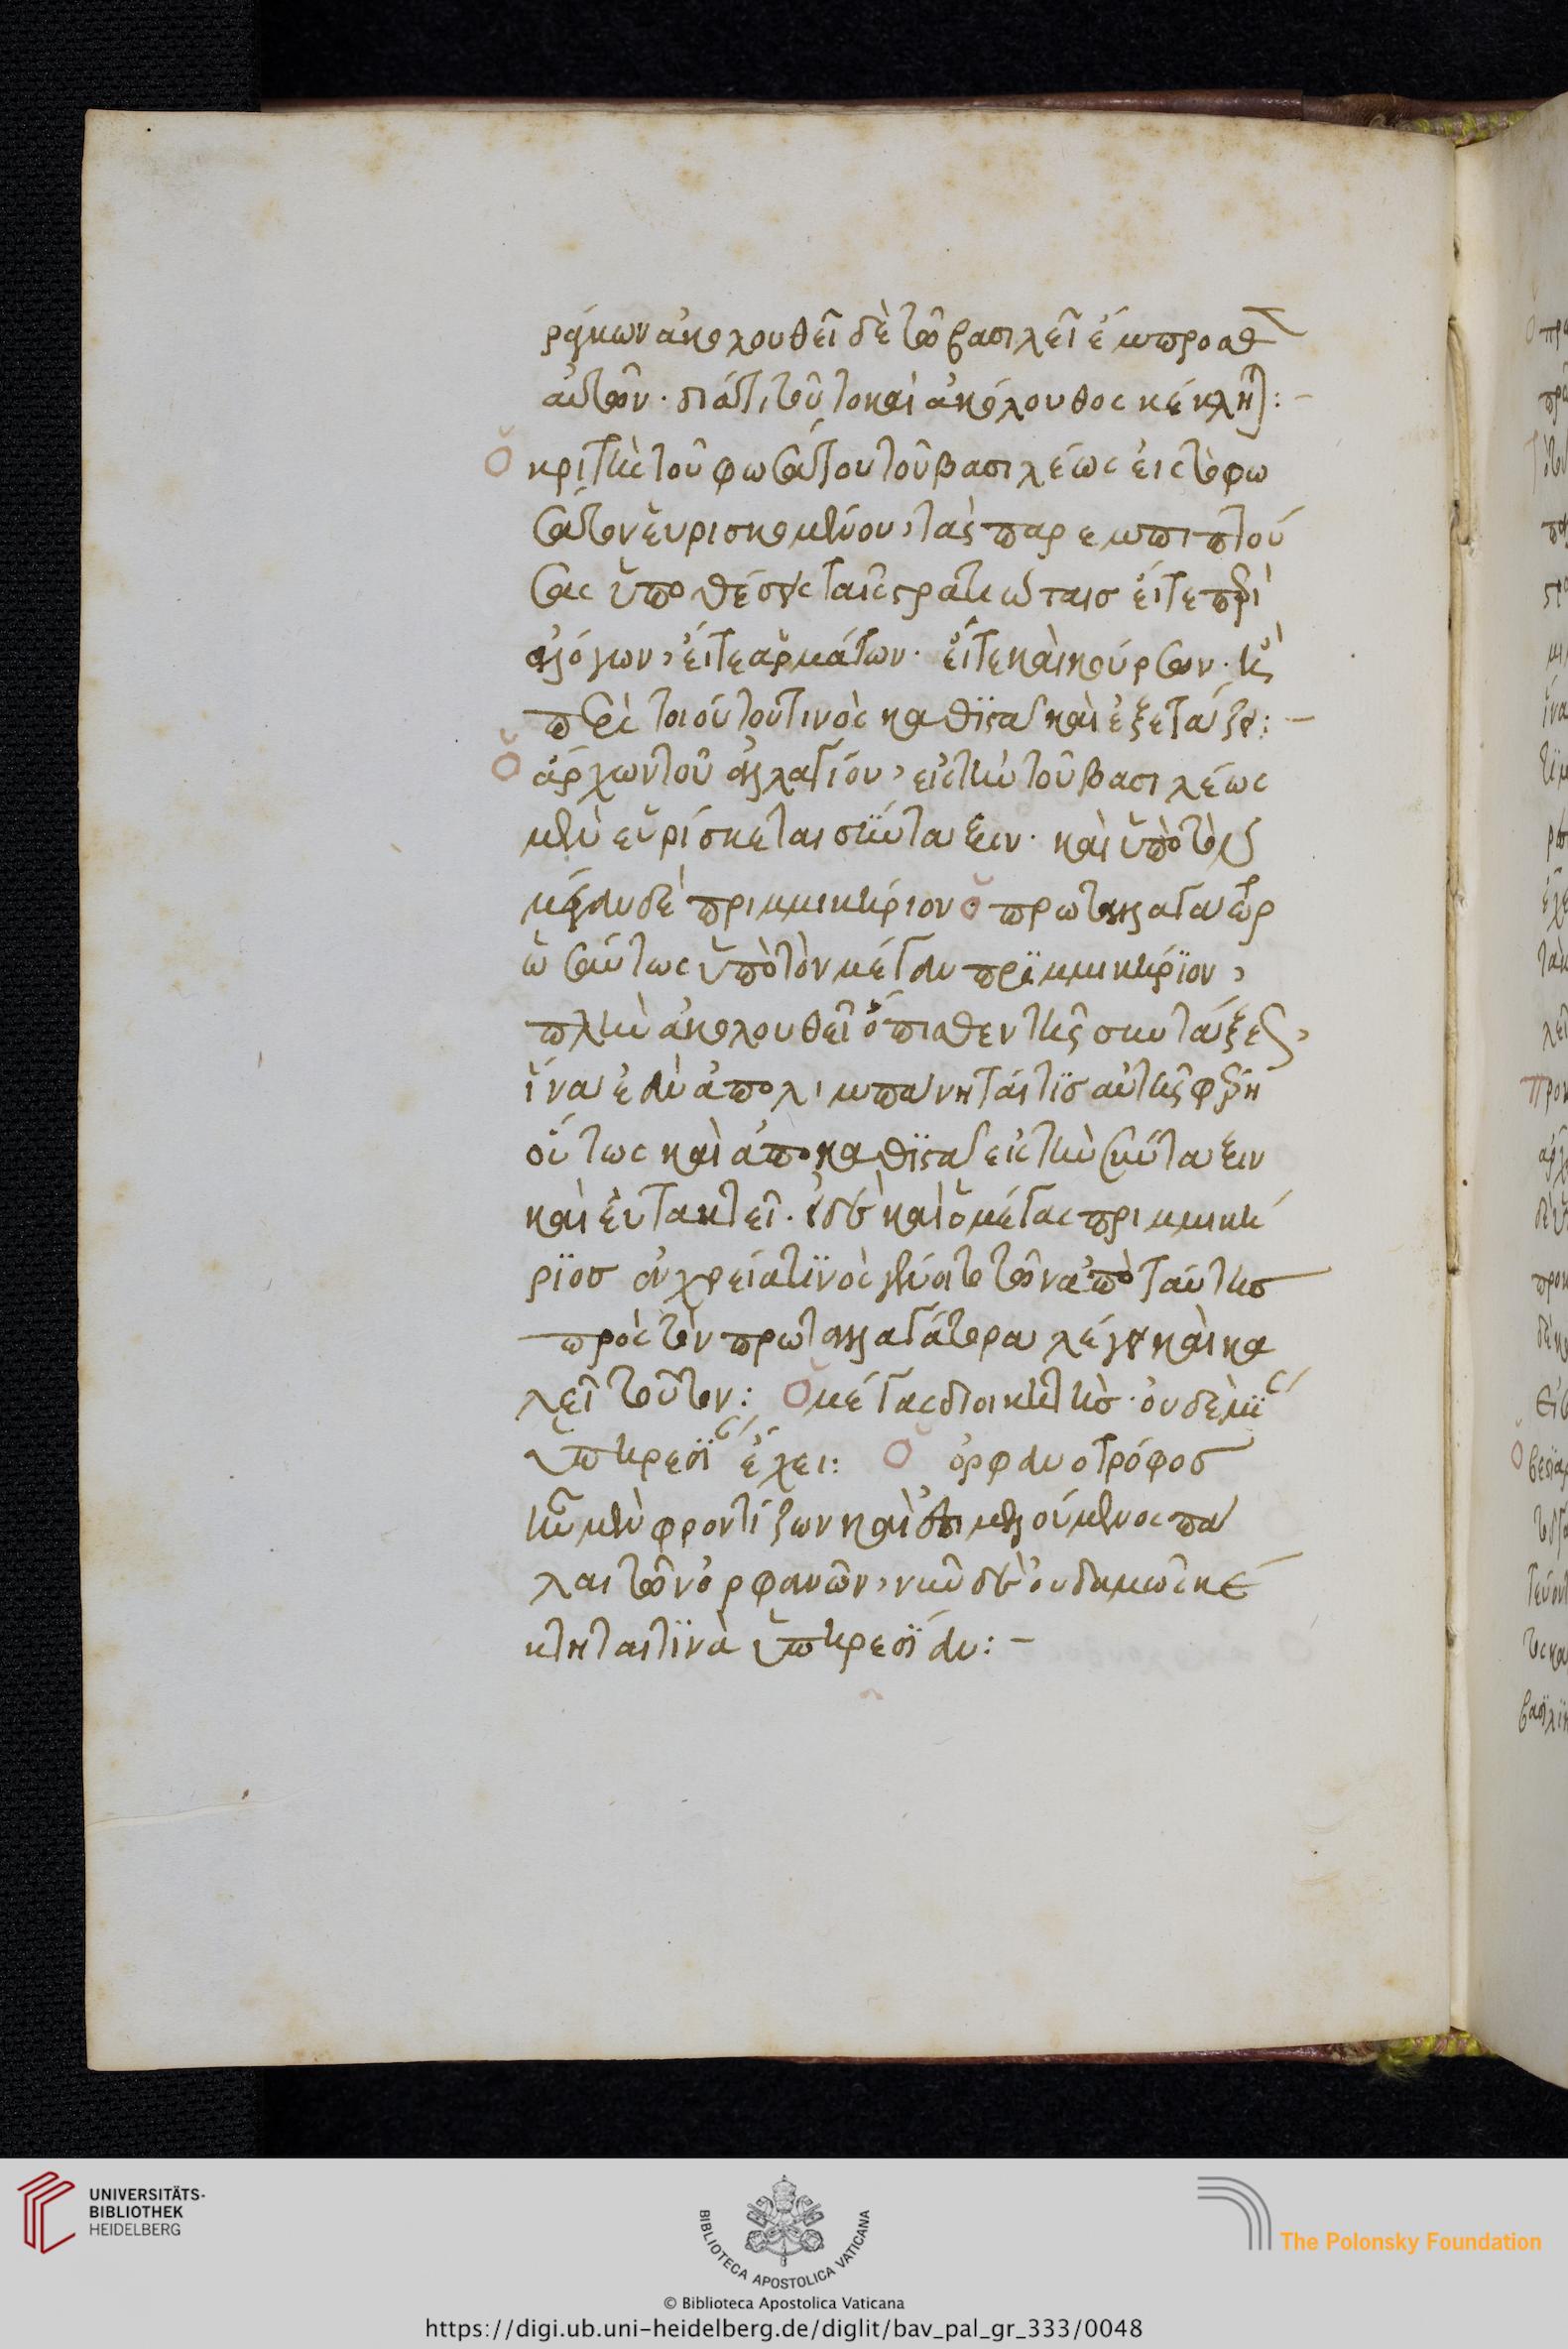 ράγκων ἀκολουθεῖ δὲ τῶ βασιλεῖ ἔμπροσθ
αὐτῶν· διάτι τοῦτο καὶ ἀκόλουθος κέκληται:-
Ὁ κριτὴς τοῦ φωσάτου τοῦ βασιλέως εἰς τὸ φω
σάτον εὑρισκομένου, τὰς παρεμπιπτού
σας ὑποθέσεις ταῖς στρατιώταισ εἴτε περὶ
ἀλόγων, εἴτε ἀρμάτων· εἴτε καὶ κούρσων· καὶ
περὶ τοιούτου τινὸς καθϊσταται καὶ ἐξετάζει:-
Ὁ ἄρχων τοῦ ἀλλαγίου, εἰς τὴν τοῦ βασιλέως
μὲν εὑρίσκεται σύνταξιν· καὶ ὑπὸ τὸν
μέγαν δὲ πριμμικήριον ὁ πρωταλλαγάτωρ
ὡσαύτως ὑπὸ τὸν μέγαν πρϊμμικήρϊον,
πλὴν ἀκολουθεῖ ὄπισθεν τῆς συντάξεως,
ἵνα ἐὰν ἀπολιμπάνηταί τϊσ αὐτῆς φέρη
οὕτως καὶ ἀποκαθϊσταται εἰς τὴν σύνταξιν
καὶ εὐτακτεῖ· εἰ δὲ καὶ ὁ μέγας πριμμική
ρϊοσ ἐν χρεία τϊνὸς γένοιτο τῶν ἀπὸ ταύτησ
πρὸς τὸν πρωταλλαγάτορα λέγει καὶ κα
λεῖ τοῦτον: Ὁ μέγας διοικητὴσ· οὐδὲ μϊαν
ὑπηρεσϊαν ἔχει: Ὁ ὀρφανοτρόφοσ
ἦν μὲν φροντίζων καὶ ἐπιμελούμενος πά
λαι τῶν ὀρφανῶν, νῦν δὲ οὐδαμῶς κέ
κτηται τϊνὰ ὑπηρεσϊαν:-
UNIVERSITÄTS-
BIBLIOTHEK
HEIDELBERG
BIBLIOTECA APOSTOLICA VATICANA
The Polonsky Foundation
© Biblioteca Apostolica Vaticana
https://digi.ub.uni-heidelberg.de/diglit/bav_pal_gr_333/0048